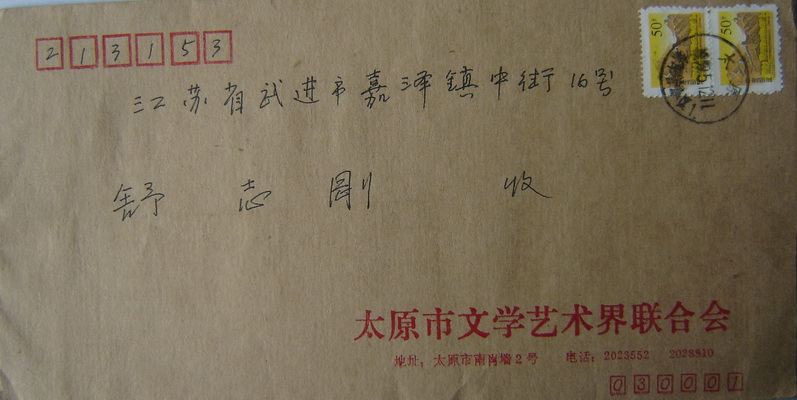 213153
江苏省武进市嘉泽镇中街16号
舒志刚 收
50 50
太原市文学艺术界联合会
地址：太原市南肖墙2号 电话：2023552 2028810
030001